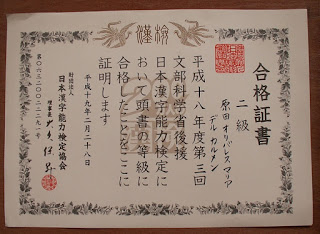 漢検
合格証書
二級
原田オリバレス マリア
デル カルメン
平成十八年度第三回
文部科学省後援
日本漢字能力検定に
おいて頭書の等級に
合格したことをここに
証明します
平成十九年二月二十八日
財団法人
日本漢字能力検定協会
理事長